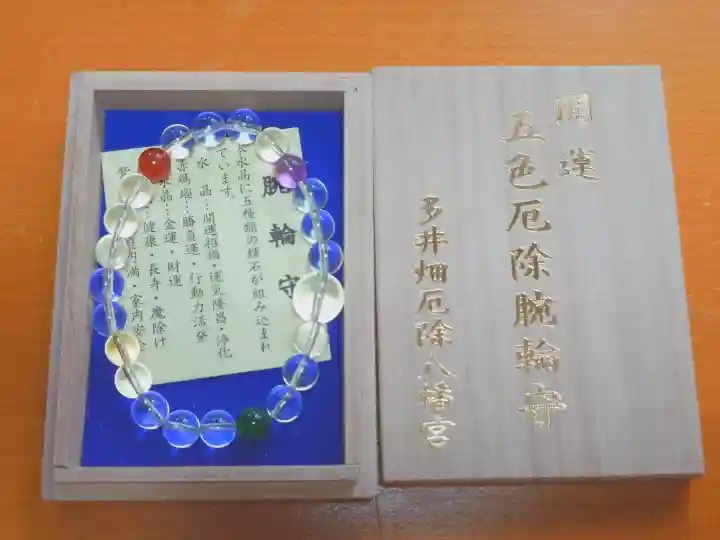 開運
五色厄除腕輪守
多井畑厄除八幡宮
腕輪守
水晶に五種類の輝石が組み込まれ
ています。
水晶…開運招福・運気隆昌・浄化
赤瑪瑙…勝負運・行動力活発
水晶…金運・財運
…健康・長寿・魔除け
円満・家内安全